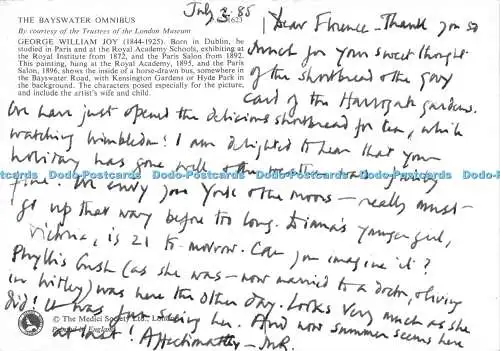 THE BAYSWATER OMNIBUS
By courtesy of the Trustees of the London Museum
GEORGE WILLIAM JOY (1844-1925). Born in Dublin, he
studied in Paris and at the Royal Academy Schools, exhibiting at
the Royal Institute from 1872, and the Paris Salon from 1892.
This painting, hung at the Royal Academy, 1895, and the Paris
Salon, 1896, shows the inside of a horse-drawn bus, somewhere in
the Bayswater Road, with Kensington Gardens or Hyde Park in
the background. The characters posed especially for the picture,
and include the artist's wife and child.
July 3. 85
Dear Florence - Thank you so
much for your sweet thought
of the shortbread & the gay
card of the Harrogate gardens.
We have just opened the delicious shortbread for tea, while
watching Wimbledon! I am delighted to hear that your
holiday has gone well & the weather was
fine. We envy you York & the moors - really must
go up that way before too long. Diana's younger girl,
Victoria, is 21 to-morrow. Can you imagine it?
Phyllis (as she was - now married to a doctor, & living
in Witley) was here the other day. Looks very much as she
did! It was seeing her. And now summer seems here
at last! Affectionately -
© The Medici Society Ltd., London
Printed in England
Dodo-Postcards Dodo-Postcards Dodo-Postcards Dodo-Postcards